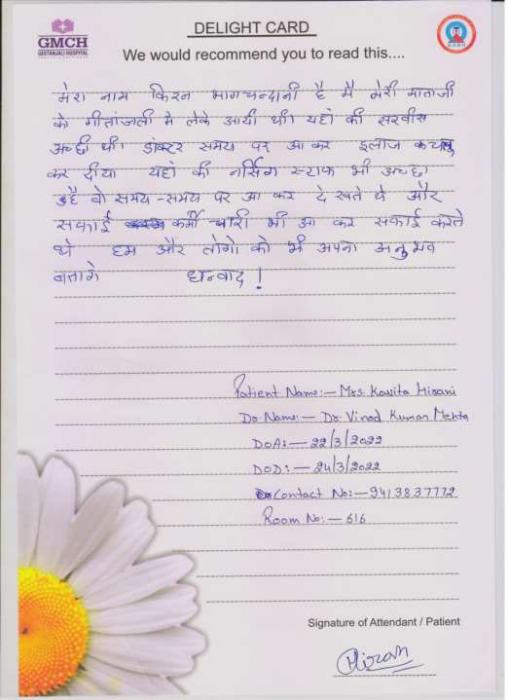 GMCH
GEETANJALI HOSPITAL
DELIGHT CARD
We would recommend you to read this....
मेरा नाम किरन भागचन्दानी है मै मेरी माताजी
के गीतांजली मे लेके आयी थी। यहाँ की सरवीस
अच्छी थी। डॉक्टर समय पर आ कर इलाज
कर दीया यहाँ की नर्सिंग स्टाफ भी अच्छा
है वो समय-समय पर आ कर देखते थे और
सफाई कर्मी चारी भी आ कर सफाई करते
थे हम और लोगो को भी अपना अनुभव
बतागे धन्वाद !
Patient Name:- Mrs. Kavita Hirani
Do Name:- Dr. Vinod Kumar Mehta
DOA:- 22/3/2022
DOD:- 24/3/2022
Contact No:- 9413837772
Room No:- 616
Signature of Attendant / Patient